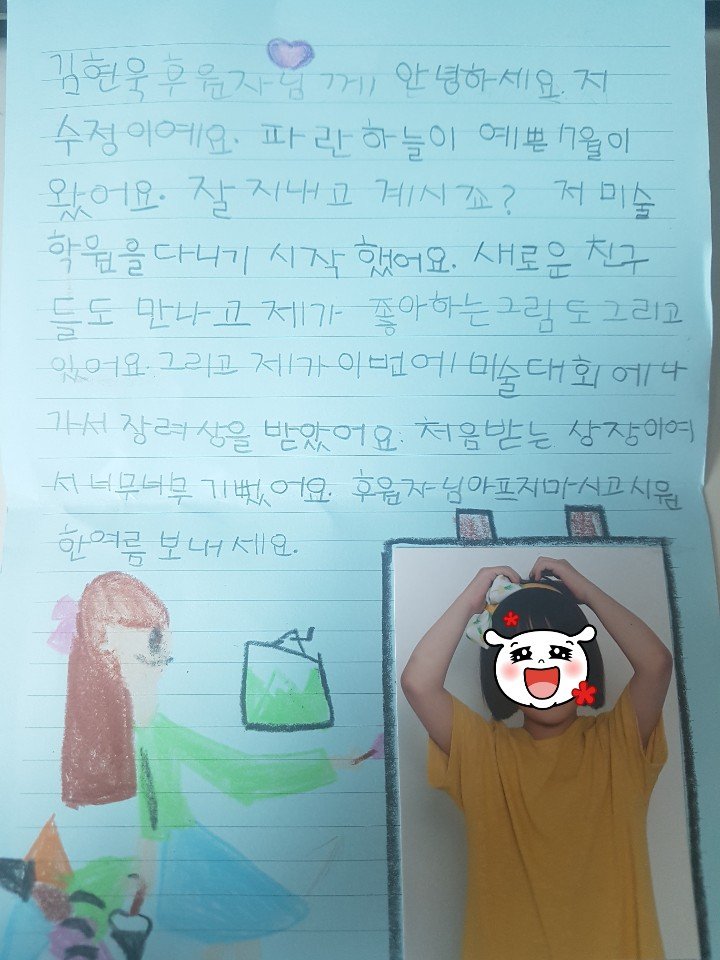 김현욱후원자님께 안녕하세요. 저
수정이예요. 파란하늘이 예쁜 7월이
왔어요. 잘 지내고 계시죠? 저 미술
학원을다니기 시작 했어요. 새로운 친구
들도 만나고 제가 좋아하는그림도그리고
있어요. 그리고 제가이번에 미술대회에나
가서 장려상을 받았어요. 처음받는 상장이여
서 너무너무 기뻤어요. 후원자님아프지마시고시원
한여름 보내세요.